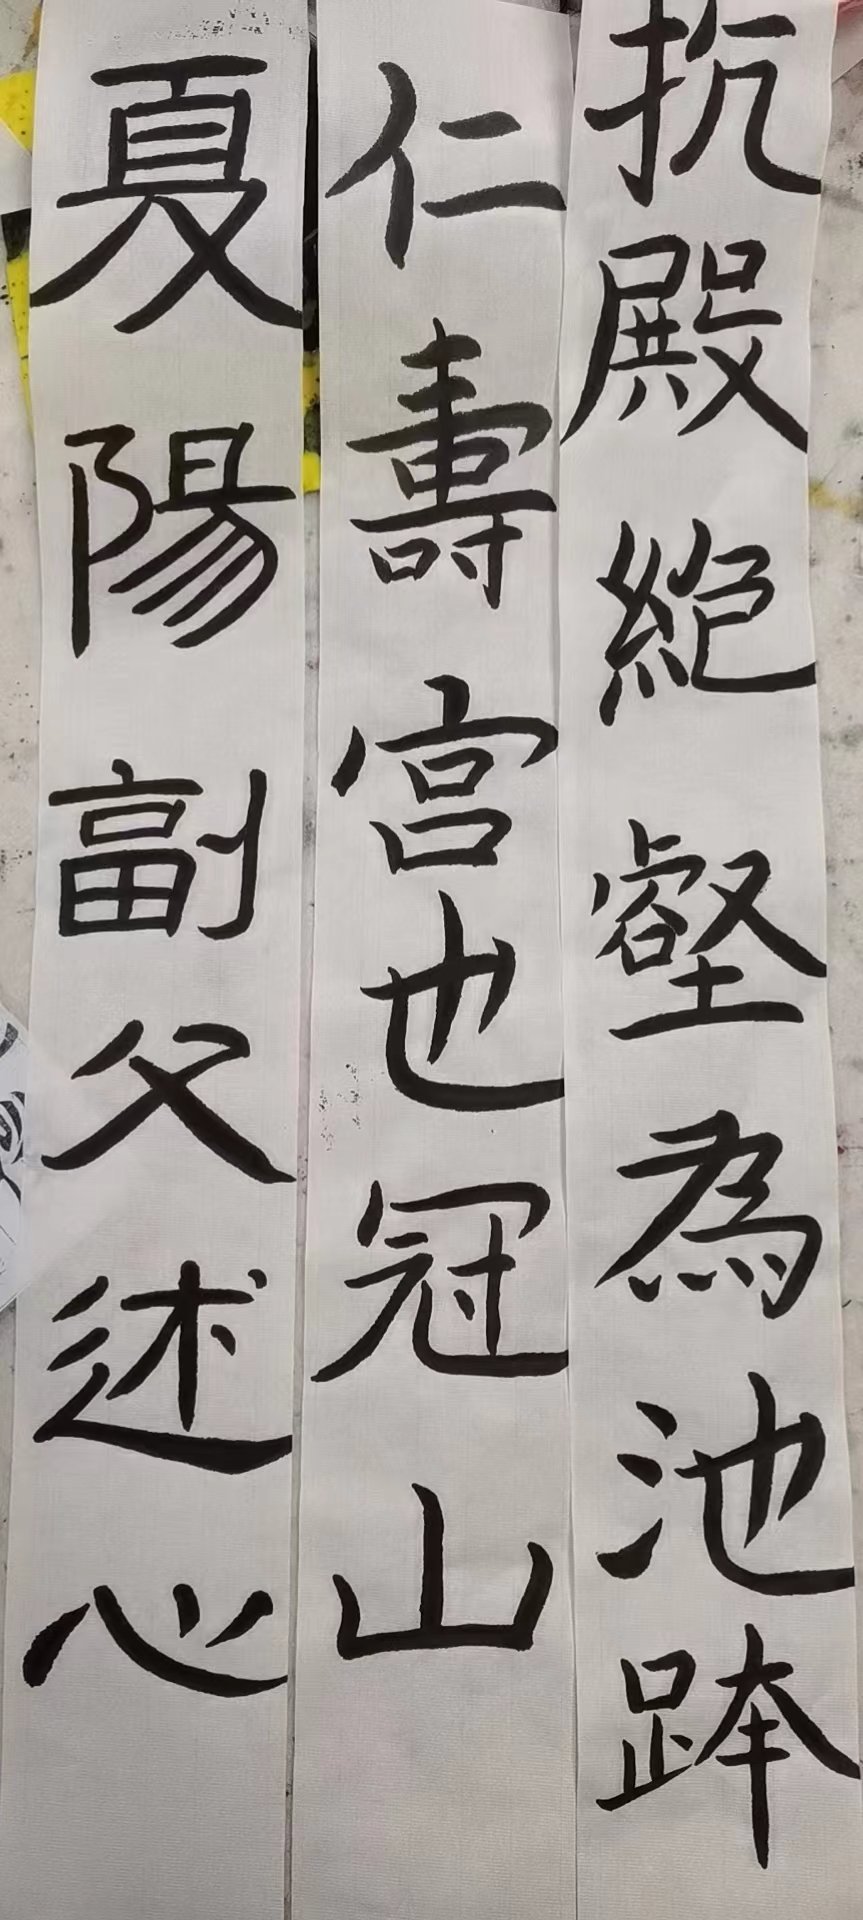 夏陽副父述心
仁壽宮也冠山
抗殿絕壑為池跨